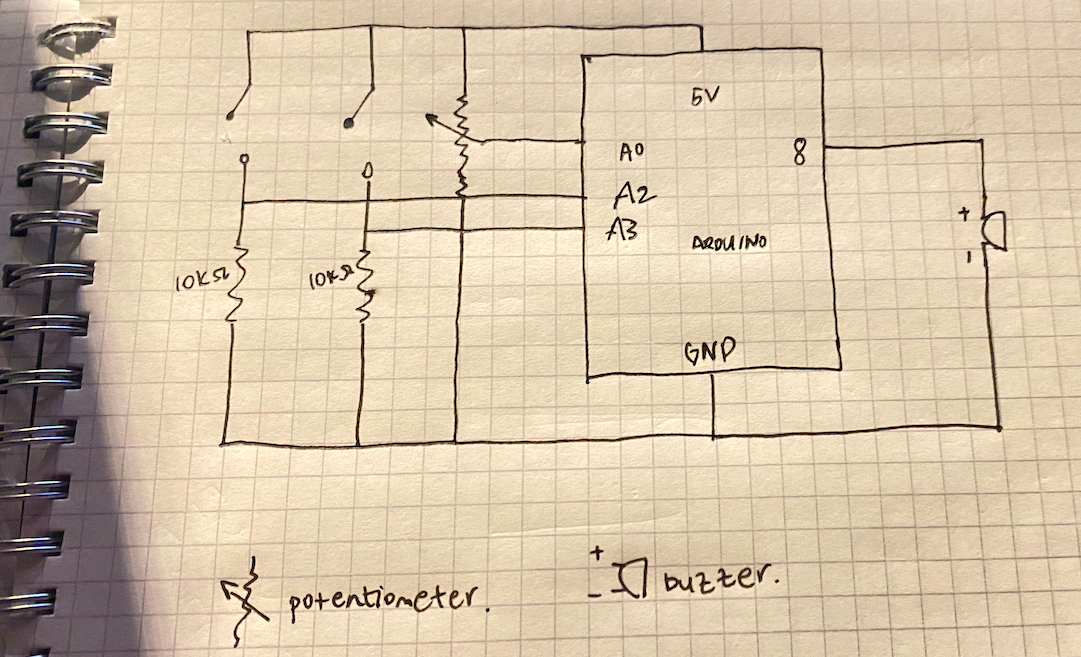 5V
A0
8
A2
A3
ARDUINO
10KΩ
10KΩ
GND
+
-
+
-
potentiometer.
buzzer.